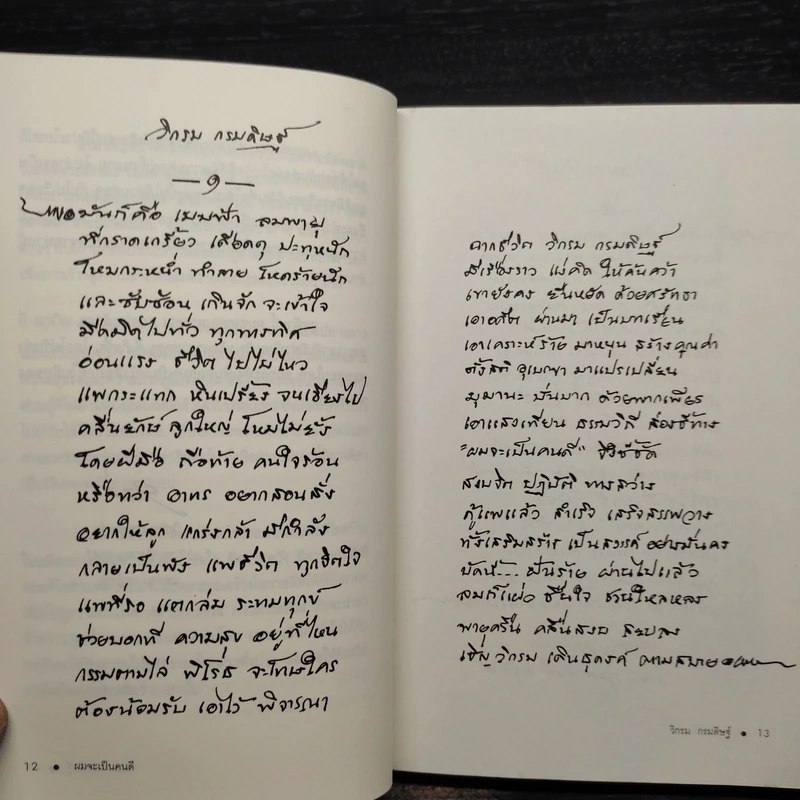 วิกรม กรมดิษฐ์
— ๑ —
พอมันก็คือ เมฆฟ้า ลมพายุ
ที่กราดเกรี้ยว เดือดดุ ปะทุหนัก
โหมกระหน่ำ ทำลาย โหดร้ายนัก
และซับซ้อน เกินจัก จะเข้าใจ
มืดมิดไปทั่ว ทุกทิศ
อ่อนแรง ชีวิต ไปไม่ไหว
แพกระแทก หินเปรี้ยง จนเอียงไป
คลื่นยักษ์ ลูกใหญ่ โหมไม่ยั้ง
โดยฝีมือ ถือท้าย คนใจร้อน
หรือทว่า อาทร อยากสอนสั่ง
อยากให้ลูก แกร่งกล้า มีกำลัง
กลายเป็นพัง แพชีวิต ทุกจิตใจ
แพที่รอ แตกล่ม ระทมทุกข์
ช่วยบอกที ความสุข อยู่ที่ไหน
กรรมตามไล่ พิโรธ จะโทษใคร
ต้องน้อมรับ เอาไว้ พิจารณา
12 • ผมจะเป็นคนดี
จากชีวิต วิกรม กรมดิษฐ์
มีเรื่องราว แง่คิด ให้ค้นคว้า
เขายังคง ยืนหยัด ด้วยศรัทธา
เอาอดีต ผ่านมา เป็นบทเรียน
เอาเคราะห์ร้าย มาหมุน สร้างคุณค่า
ตั้งสติ อุเบกขา มาแปรเปลี่ยน
มุมานะ บั่นบาก ด้วยพากเพียร
เอาแสงเทียน ธรรมวิถี ส่องชี้ทาง
"ผมจะเป็นคนดี" ชี้ชัด
สงบจิต ปฏิบัติ ทางสว่าง
กู้แพแล้ว สำเร็จ เสร็จสรรพวาง
ทั้งเสริมสร้าง เป็นสงฆ์ อย่างมั่นคง
บัดนี้... ฝันร้าย ผ่านไปแล้ว
ลมก็แผ่ว ชื่นใจ ชวนใหลหลง
พายุครืน คลื่นสงบ สยบลง
เชิญ วิกรม เดินธุดงค์ ตามสบาย
วิกรม กรมดิษฐ์ • 13